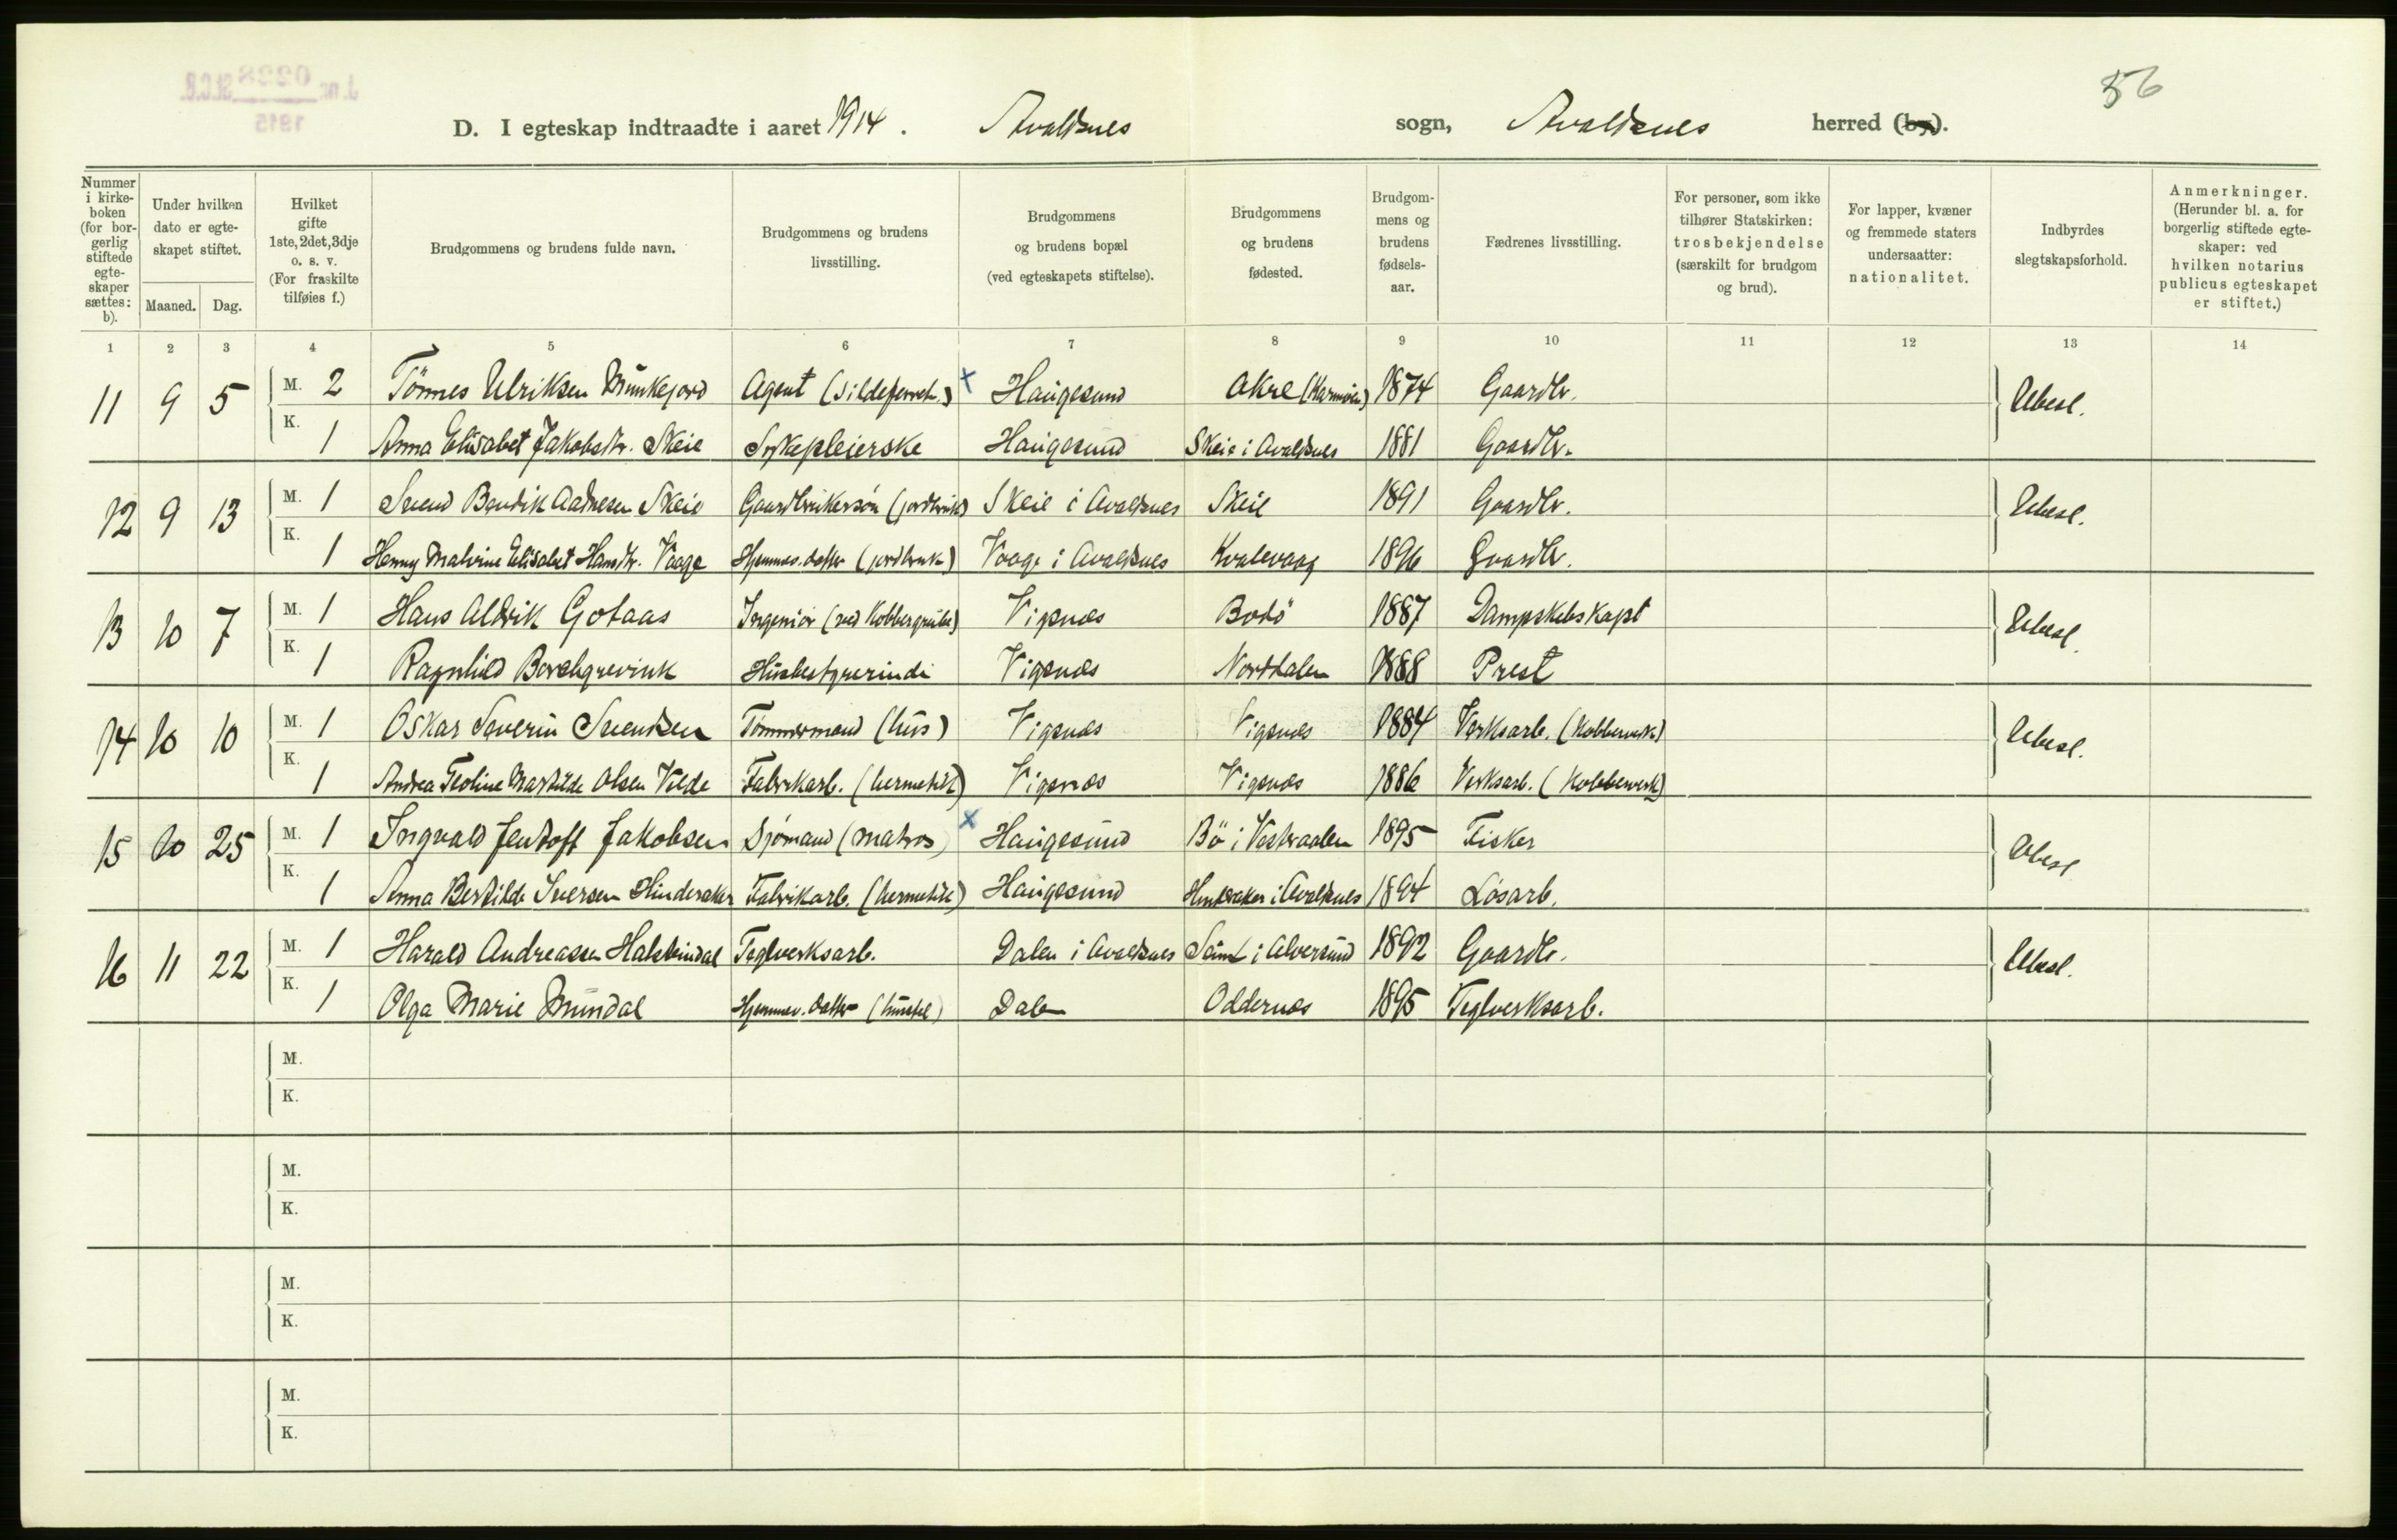 J. nr. 0228 St.C.B.
1915
56
D. I egteskap indtraadte i aaret 1914. Avaldsnes sogn, Avaldsnes herred (by).
Nummer i kirkeboken (for borgerlig stiftede egteskaper sættes: b).
Under hvilken dato er egteskapet stiftet.
Maaned. Dag.
Hvilket gifte 1ste, 2det, 3dje o. s. v. (For fraskilte tilføies f.)
Brudgommens og brudens fulde navn.
Brudgommens og brudens livsstilling.
Brudgommens og brudens bopæl (ved egteskapets stiftelse).
Brudgommens og brudens fødested.
Brudgommens og brudens fødselsaar.
Fædrenes livsstilling.
For personer, som ikke tilhører Statskirken: trosbekjendelse (særskilt for brudgom og brud).
For lapper, kvæner og fremmede staters undersaatter: nationalitet.
Indbyrdes slegtskapsforhold.
Anmerkninger. (Herunder bl. a. for borgerlig stiftede egteskaper: ved hvilken notarius publicus egteskapet er stiftet.)
1 2 3 4 5 6 7 8 9 10 11 12 13 14
11 9 5 M. 2 Tönnes Ulriksen Munkejord Agent (sildeforretn.) x Haugesund Akre (Karmöen) 1874 Gaardbr. Ubesl.
K. 1 Anna Elisabet Jakobsdtr. Skeie Sykepleierske Haugesund Skeie i Avaldsnes 1881 Gaardbr.
12 9 13 M. 1 Svend Bendik Aadnesen Skeie Gaardbrukersön (jordbruk) Skeie i Avaldsnes Skeie 1891 Gaardbr. Ubesl.
K. 1 Henny Malvine Elisabet Hansdtr. Vaage Hjemmev. datter (jordbruk) Vaage i Avaldsnes Kvalevaag 1896 Gaardbr.
13 10 7 M. 1 Hans Aldrik Gotaas Ingeniör (ved Kobbergrube) Vigsnes Bodö 1887 Dampskibskapt Ubesl.
K. 1 Ragnhild Borchgrevink Husbestyrerinde Vigsnes Norddalen 1888 Prest
14 10 10 M. 1 Oskar Severin Svendsen Tömmermand (hus) Vigsnes Vigsnes 1884 Verksarb. (Kobberverk) Ubesl.
K. 1 Andrea Teoline Matilde Olsen Velde Fabrikarb. (hermetik) Vigsnes Vigsnes 1886 Verksarb. (Kobberverk)
15 10 25 M. 1 Ingvald Jentoft Jakobsen Sjömand (matros) x Haugesund Bö i Vesteraalen 1895 Fisker Ubesl
K. 1 Anna Bertilde Iversen Hinderaker Fabrikarb. (hermetik) Haugesund Hinderaker i Avaldsnes 1894 Lösarb.
16 11 22 M. 1 Harald Andreassen Halsteindal Teglverksarb. Dalen i Avaldsnes Seim i Alversund 1892 Gaardbr. Ubesl.
K. 1 Olga Marie Mundal Hjemmev. datter (husstel) Dalen Oddernes 1895 Teglverksarb.
M.
K.
M.
K.
M.
K.
M.
K.